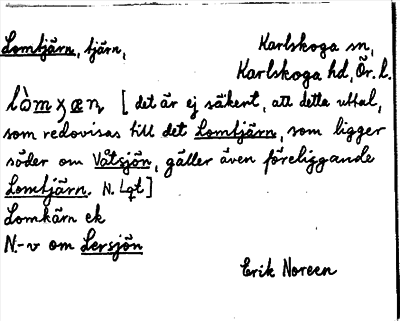 Lomtjärn, tjärn, Karlskoga sn,
Karlskoga hd, Ör. l.
[ det är ej säkert, att detta uttal,
som redovisas till det Lomtjärn, som ligger
söder om Våtsjön, gäller även föreliggande
Lomtjärn. N. Lgt ]
Lomkärn ek
N.-v om Lersjön
Erik Noreen